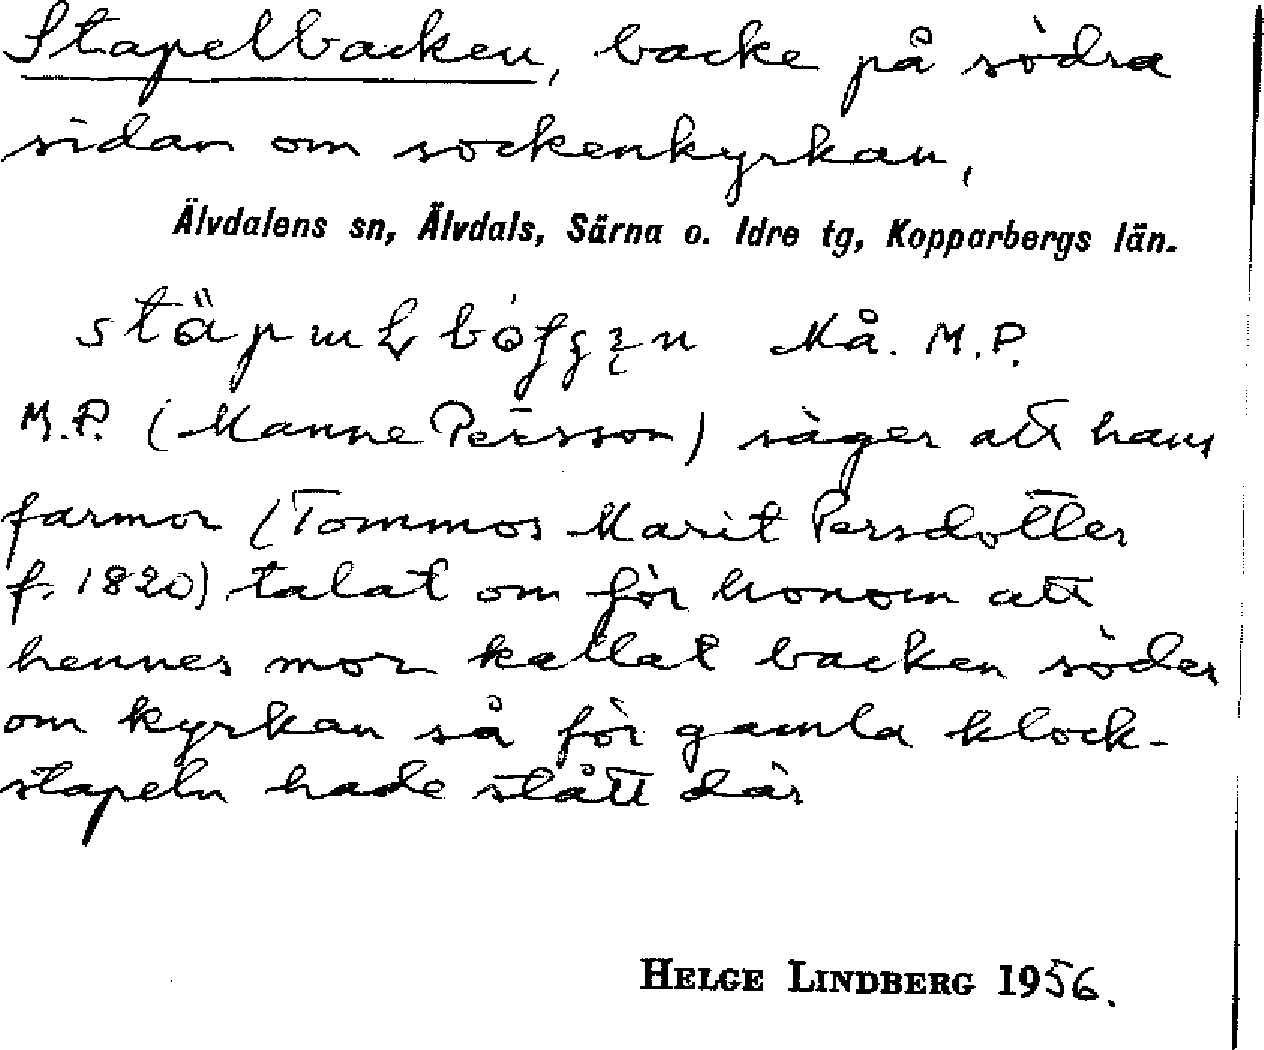 Stapelbacken, backe på södra
sidan om sockenkyrkan,
Älvdalens sn, Älvdals, Särna o. Idre tg, Kopparbergs län.
Må. M.P.
M.P. (Manne Persson) säger att hans
farmor (Tommos Marit Persdotter
f. 1820) talat om för honom att
hennes mor kallat backen söder
om kyrkan så för gamla klock-
stapeln hade stått där
HELGE LINDBERG 1956.